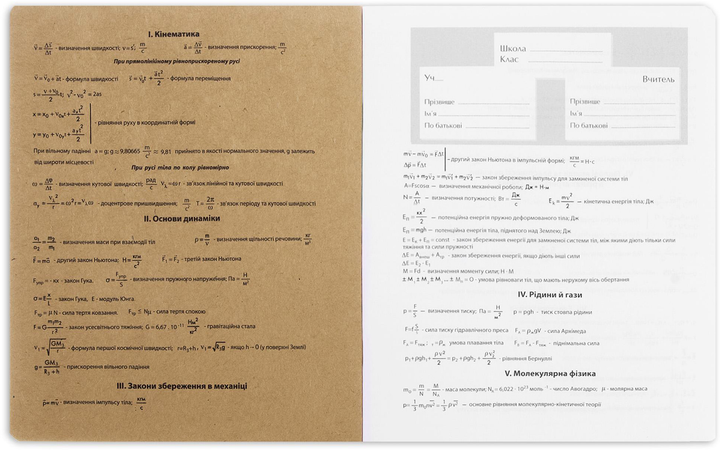 I. Кінематика
v⃗ = Δs⃗/Δt - визначення швидкості; v=s'; м/с a⃗ = Δv⃗/Δt - визначення прискорення; м/с²
При прямолінійному рівноприскореному русі
v⃗ = v⃗₀ + a⃗t - формула швидкості s⃗ = v⃗₀t + a⃗t²/2 - формула переміщення
s = (v+v₀)/2 t; v²-v₀² = 2as
x = x₀ + v₀ₓt + aₓt²/2
- рівняння руху в координатній формі
y = y₀ + v₀ᵧt + aᵧt²/2
При вільному падінні a = g; g ≈ 9,80665 м/с² ≈ 9,81 прийнято в якості нормального значення, g залежить
від широти місцевості
При русі тіла по колу рівномірно
ω = Δφ/Δt - визначення кутової швидкості; рад/с v = ωr - зв'язок лінійної та кутової швидкості
- доцентрове пришвидшення, м/с² T = 2π/ω зв'язок періоду та кутової швидкості
II. Основи динаміки
- визначення маси при взаємодії тіл ρ = m/V - визначення щільності речовини; кг/м³
F⃗ = ma⃗ - другий закон Ньютона; Н= F⃗₁ = F⃗₂ - третій закон Ньютона
Fпруж = - kx - закон Гука. σ = Fпруж/S - визначення пружного напруження; Па = Н/м²
- закон Гука, E - модуль Юнга.
Fтр = μ N - сила тертя ковзання. Fтр ≤ Nμ - сила тертя спокою.
F = G m₁m₂/r² - закон усесвітнього тяжіння; G = 6,67 . 10⁻¹¹ Нм²/кг² - гравітаційна стала
- формула першої космічної швидкості; - якщо h→0 (у поверхні Землі)
- прискорення вільного падіння
III. Закони збереження в механіці
p⃗ = mv⃗ - визначення імпульсу тіла; кгм/с
Школа
Клас
Уч
Вчитель
Прізвище Прізвище
Ім'я Ім'я
По батькові По батькові
mv⃗ - mv⃗₀ = F⃗Δt
- другий закон Ньютона в імпульсній формі; кгм/с = Н·с
Δp⃗ = F⃗Δt
m₁v⃗₁ + m₂v⃗₂ = m₁v⃗₁ + m₂v⃗₂ - закон збереження імпульсу для замкненої системи тіл
A=Fscosα — визначення механічної роботи; Дж = Н·м
N = A/Δt — визначення потужності; Вт = Дж/с Eₖ = mv²/2 — кінетична енергія тіла; Дж
Eп = kx²/2 — потенційна енергія пружно деформованого тіла; Дж
Eп = mgh — потенційна енергія тіла, піднятого над Землею; Дж
E = Eₖ + Eп = const - закон збереження енергії для замкненої системи тіл, між якими діють тільки сили
тяжіння та сили пружності
- закон збереження енергії, якщо діють інші сили
ΔE = E₂ - E₁
M = Fd - визначення моменту сили; Н · М
= 0 — умова рівноваги тіл, що мають нерухому вісь обертання
IV. Рідини й гази
p = F/S — визначення тиску; Па = Н/м² p = ρgh - тиск стовпа рідини
- сила тиску гідравлічного преса Fₐ = ρжgV - сила Архімеда
умова плавання тіла - піднімальна сила
p₁+ρgh₁ + ρv₁²/2 = p₂ + ρgh₂ + ρv₂²/2 - рівняння Бернуллі
V. Молекулярна фізика
m₀ = m/N = M/Nₐ - маса молекули; Nₐ = 6,022 · 10²³ моль⁻¹ - число Авогадро; - молярна маса
p = 1/3 m₀nv² = 1/3 ρv² — основне рівняння молекулярно-кінетичної теорії